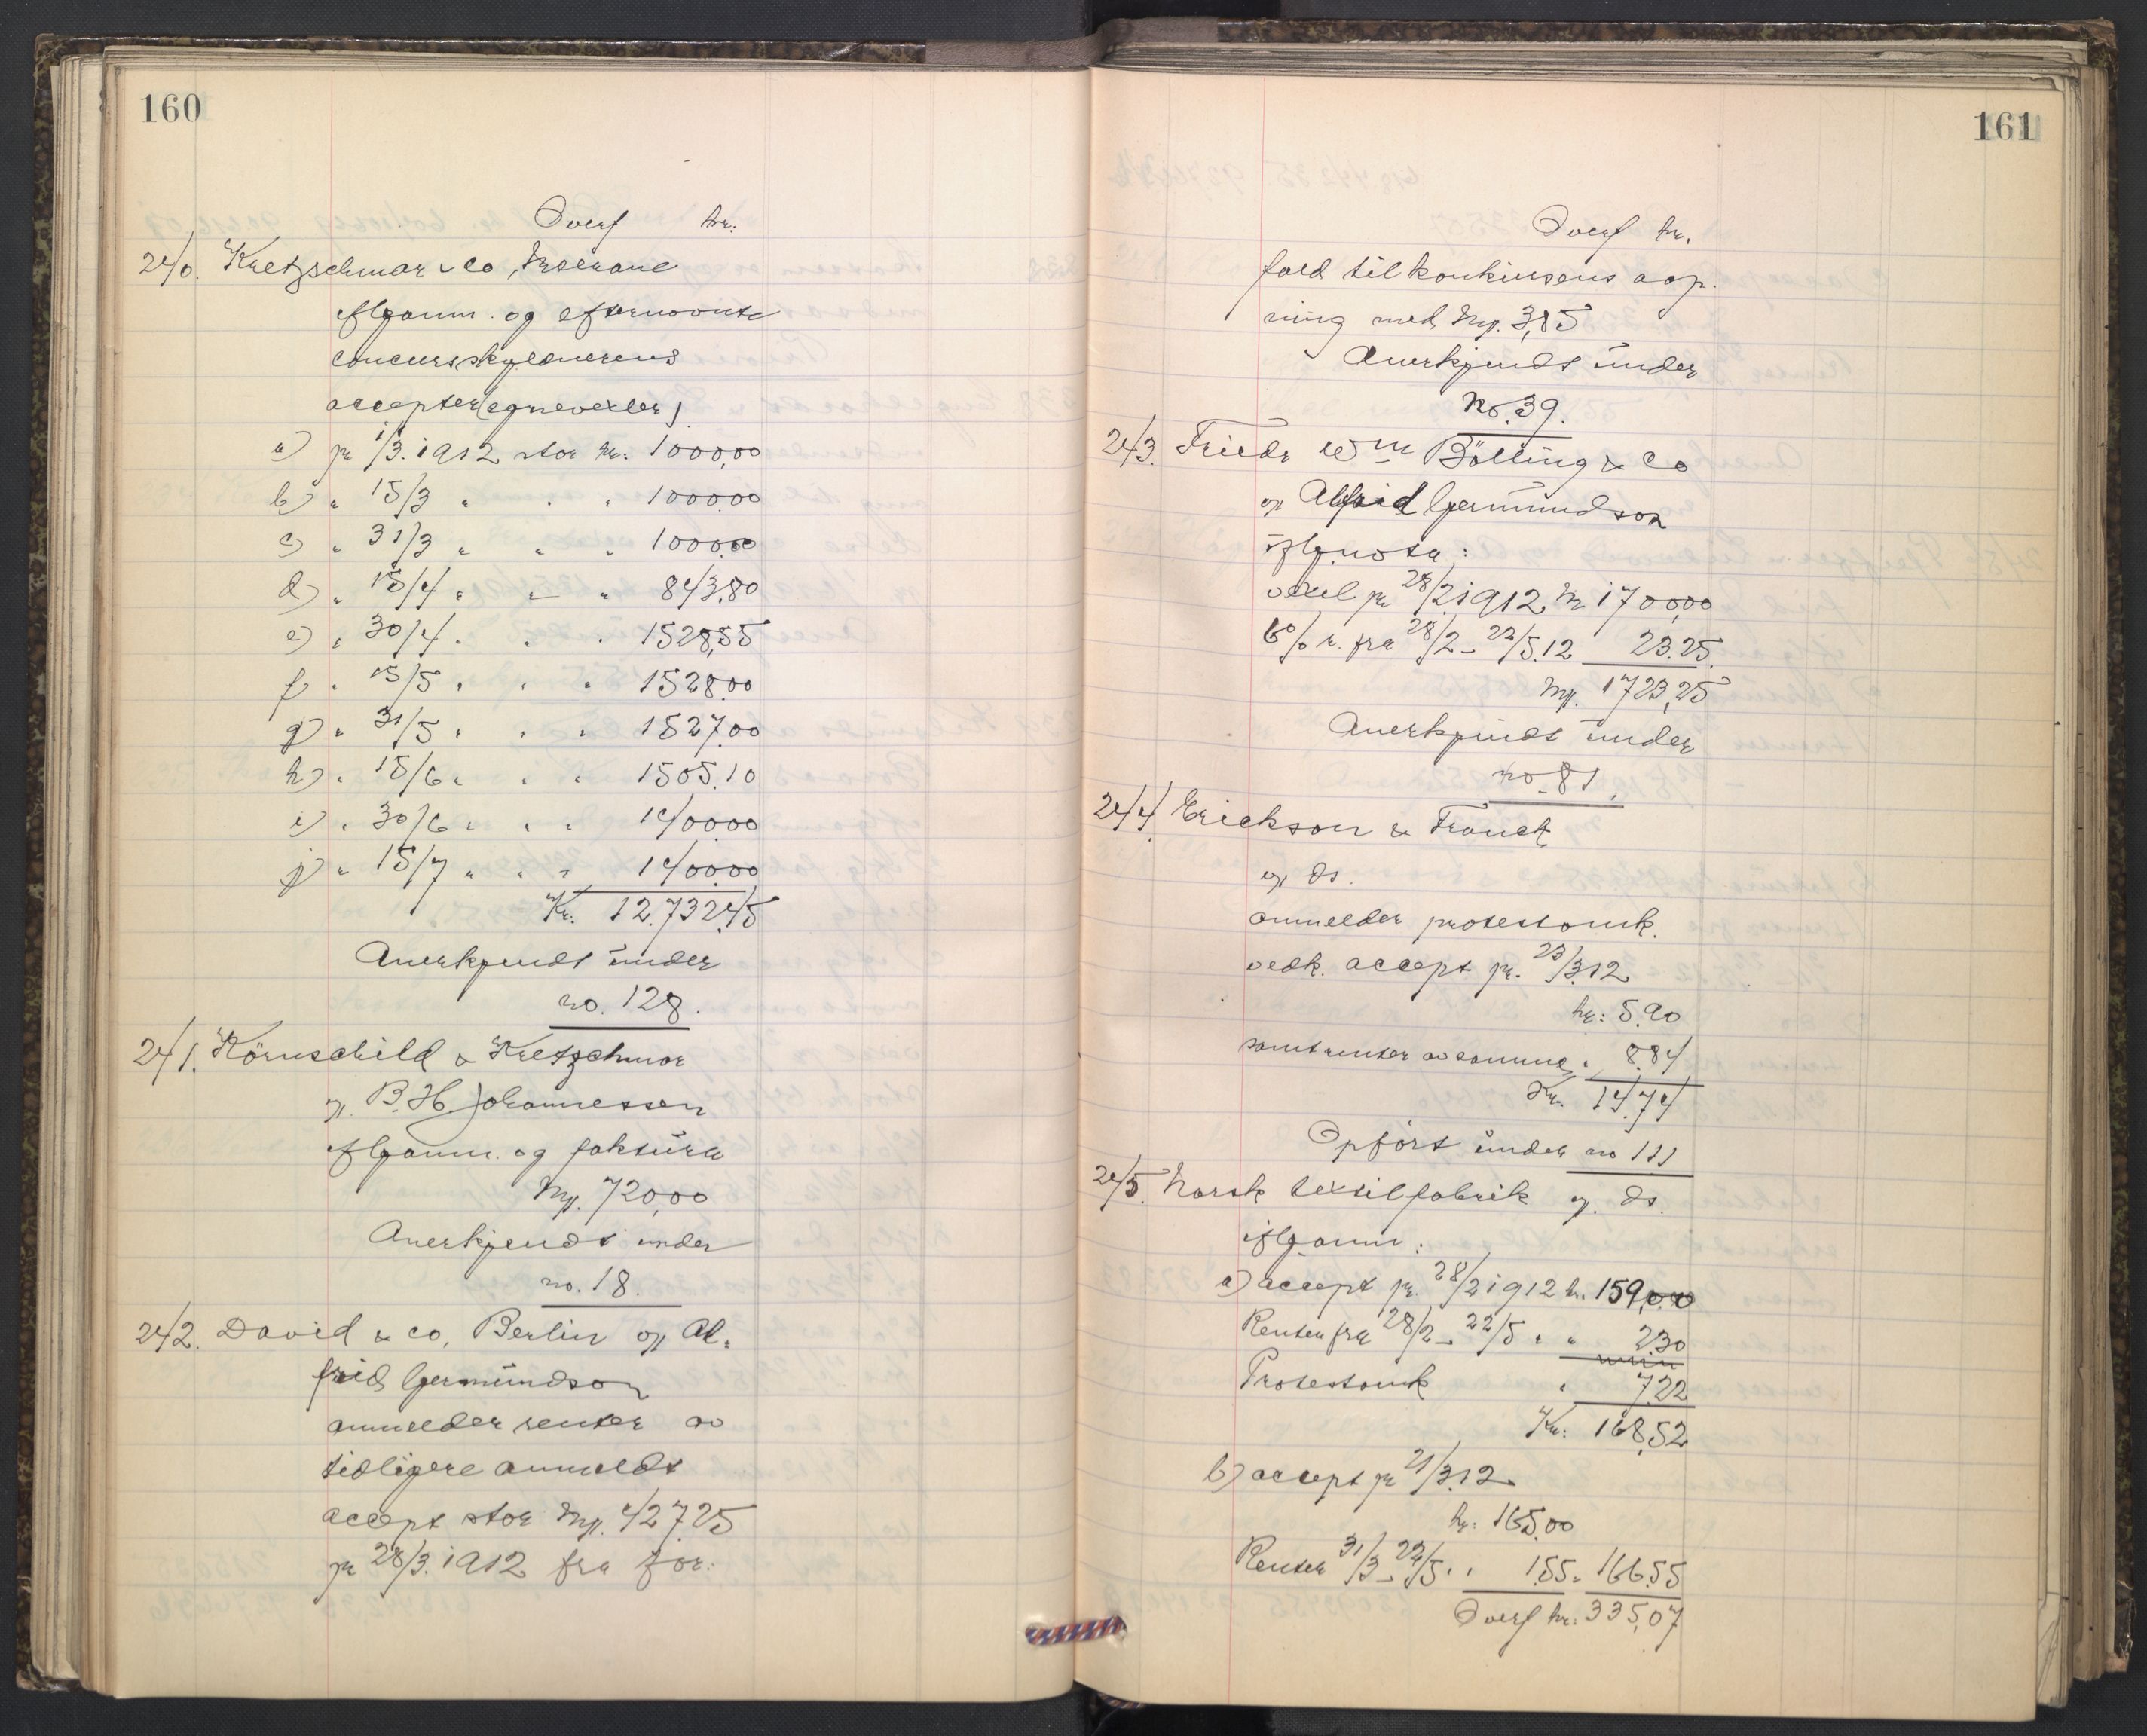 160
Overf kr:
240. Kretzschmar & Co, Meerane
iflganm. og eftermonte
concursskyldnerens
accepter (egnevexler)
a) pr 1/3. 1912 stor kr: 1000,00
b) " 15/3 " " " 1000.00
c) " 31/3 " " " 1000.00
d) " 15/4 " " " 843.80
e) " 30/4 " " " 1528,55
f " 15/5 " " " 1528.00
g) " 31/5 " " " 1527.00
h) " 15/6 " " " 1505.10
i) " 30/6 " " " 1400.00
j) " 15/7 " " " 1400.00
Kr. 12.732.45
Anerkjendt under
no. 128.
241. Körnschild & Kretzchmar
v. B. H. Johannessen
iflganm. og faktura
Mk. 720,00
Anerkjendt under
no. 18.
242. David & Co, Berlin v Al-
frid Germundson
anmelder renter av
tidligere anmeldt
accept stor Mk. 427.25
pr 28/3. 1912 fra for:
161
Overf kr.
fald til konkursens aap.
ning med Mk. 3,85
Anerkjendt under
No. 39.
243. Friedr Wm Bölling & Co
v Alfrid Germundson
iflg nota:
vexel pr 28/2 1912 Mk 1700,00
6% r. fra 28/2 - 22/5.12 23.25.
Mk. 1723,25
Anerkjendt under
no. 81.
244. Erickson & Franck
v ds.
anmelder protestomk.
vedk. accept pr. 23/3.12
kr: 5.90
samt renter av samme " 8.84
Kr. 14.74
Opført under no 111
245. Norsk textilfabrik v. ds.
iflganm:
a) accept pr. 28/2 1912 kr. 159,00
Renter fra 28/2 - 22/5 " " 2.30
Protestomk " 7.22
Kr: 168,52
b) accept pr 21/3.12
kr: 165.00
Renter 31/3 - 22/5 " " 1.55 " 166.55
Overf kr: 335,07